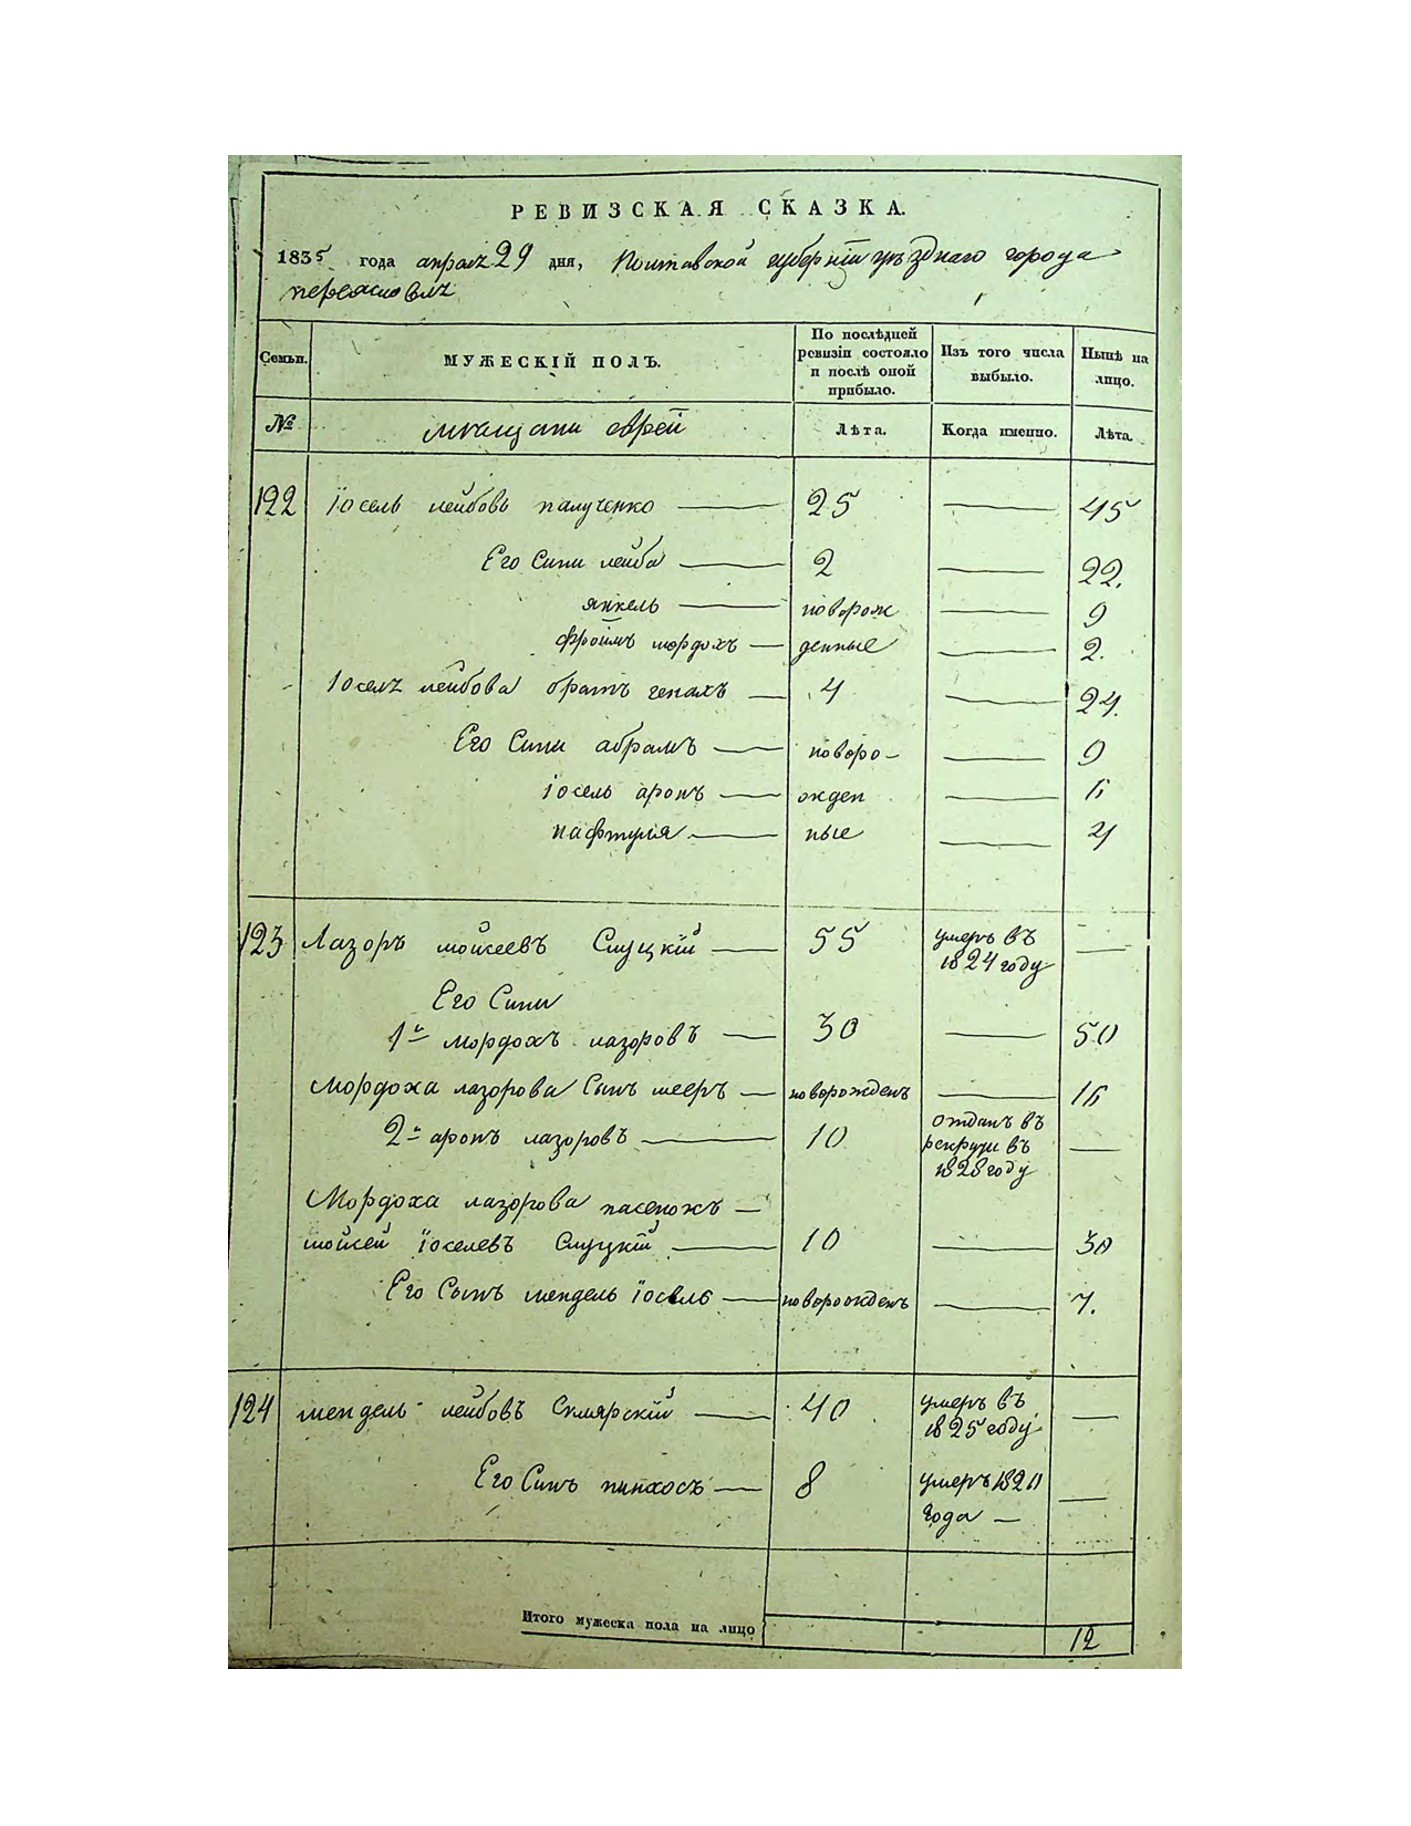 РЕВИЗСКАЯ СКАЗКА.
1835 года апреля 29 дня, Полтавской губернiи уѣзднаго города
переяславля
Семьи. МУЖЕСКIЙ ПОЛЪ. По послѣдней ревизiи состояло и послѣ оной прибыло. Изъ того числа выбыло. Нынѣ на лицо.
№ мещани еврей Лѣта. Когда именно. Лѣта.
122 Iосель лейбовъ палученко — 25 — 45
Его Сини лейба — 2 — 22.
янкель — новорож — 9
фроимъ мордохъ — денные — 2.
Iосел лейбова братъ генахъ — 4 — 24.
Его Сини абрамъ — новоро- — 9
iосель аронъ — жден — 6
нафтуля — ные — 4
123 Лазоръ мойсеевъ Слуцкiй — 55 умеръ въ 1824 году —
Его Сини
1й мордохъ лазоровъ — 30 — 50
Мордоха лазорова Сынъ мееръ — новорожденъ — 16
2й аронъ лазоровъ — 10 отданъ въ рекрути въ 1828 году —
Мордоха лазорова пасенокъ —
мойсей iоселевъ Слуцкiй — 10 — 30
Его Сынъ мендель iосель — новорожденъ — 7.
124 мендель лейбовъ Склярскiй — 40 умеръ въ 1825 году —
Его Синъ пинхосъ — 8 умеръ 1820 года — —
Итого мужеска пола на лицо 12